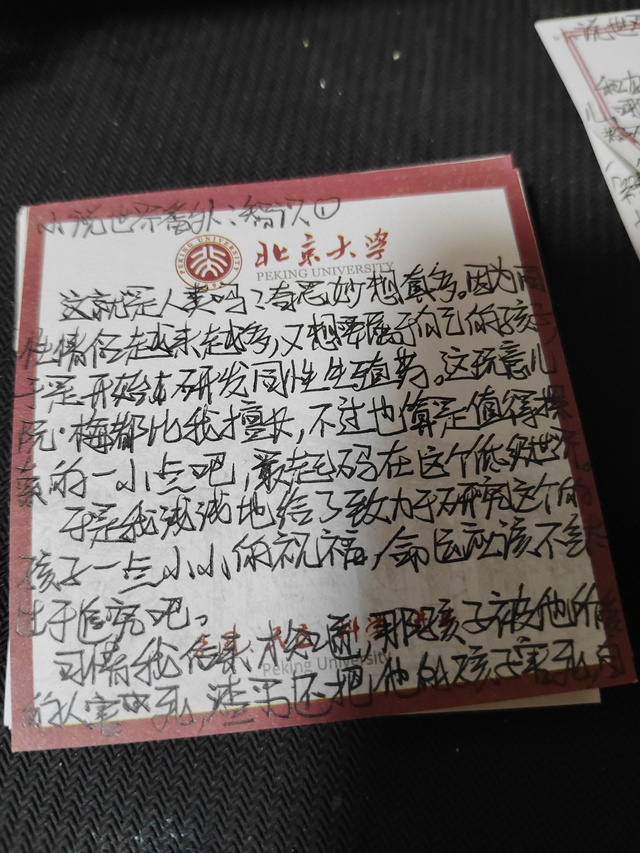 小说世界番外:智识①
北京大学
PEKING UNIVERSITY
这就是人类吗?奇思妙想真多。因为同
性情侣越来越多,又想要属于自己的孩子
于是开始研发同性生殖药。这玩意儿
阮·梅都比我擅长,不过也算是值得探
索的一小点吧,最起码在这个低级世界。
于是我浅浅地给了致力于研究这个的
孩子一点小小的祝福,命运应该不会太
出于
吧。
可惜我后来才知道,那孩子被他所
的人害死,渣男还把他的孩子害死,
Peking University
小说世